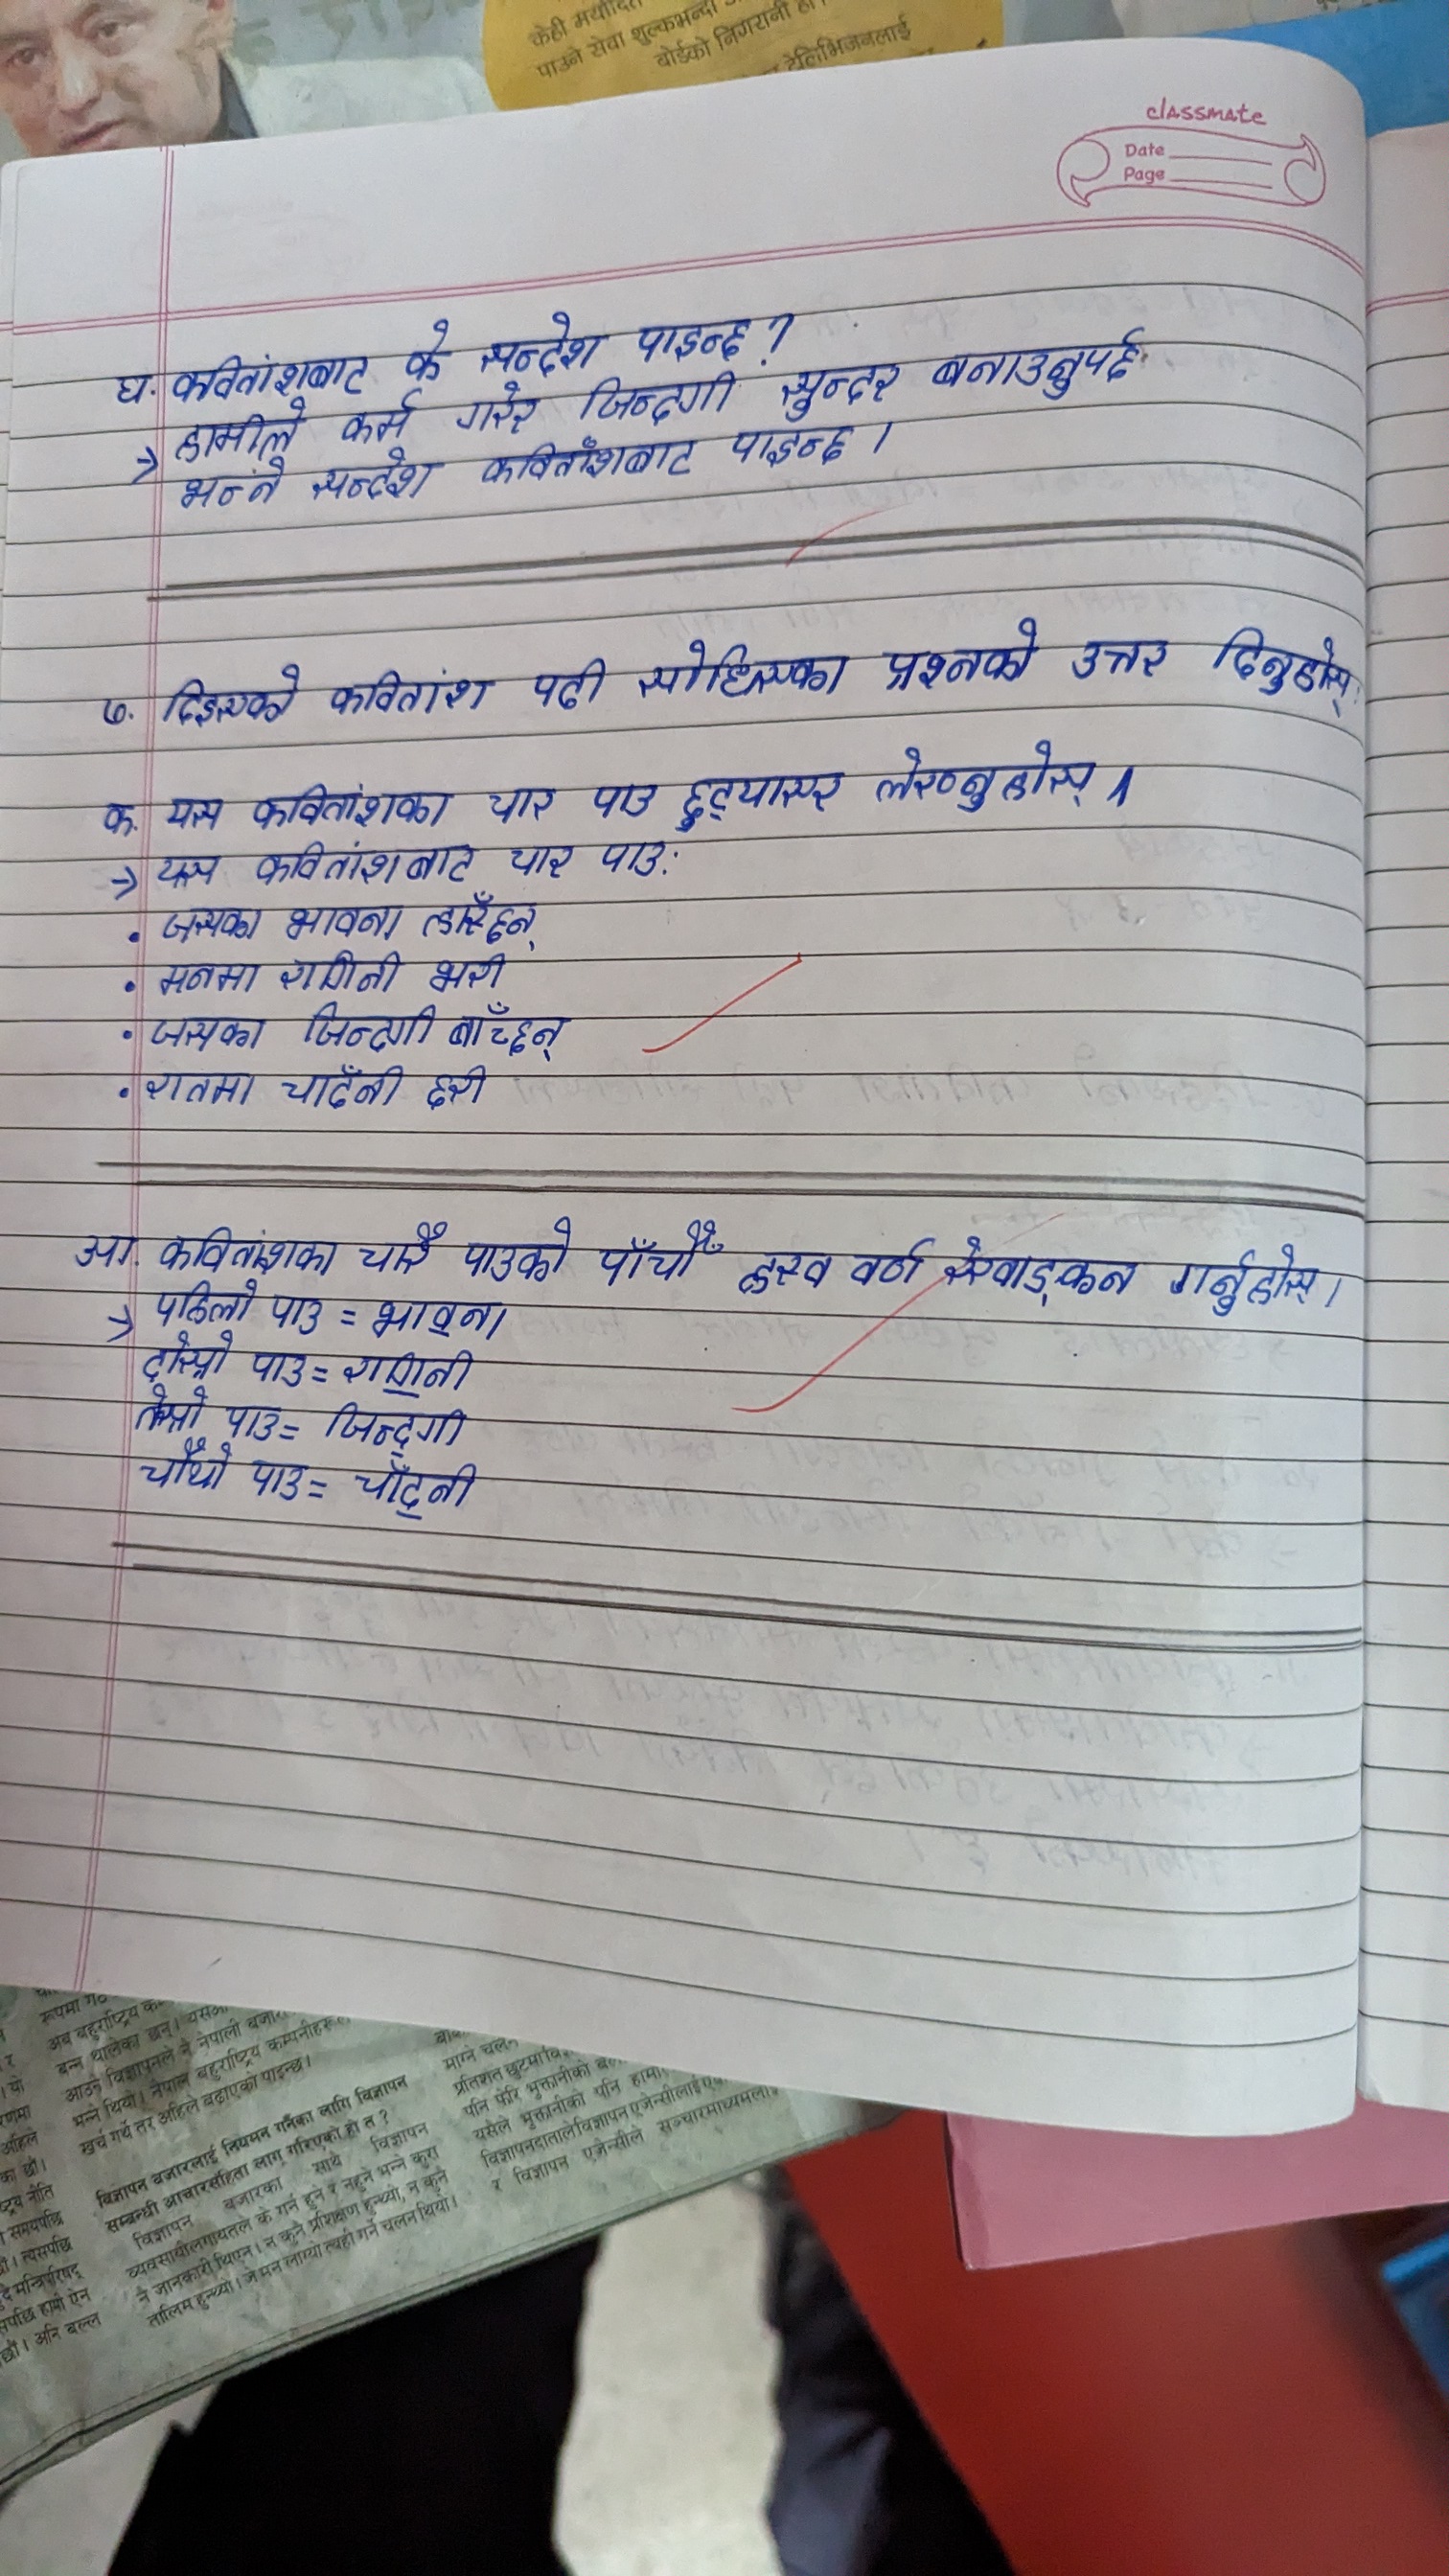 केही मर्यादित
पाउने सेवा शुल्कभन्दा
बोर्डको निगरानी हो।
टेलिभिजनलाई
classmate
Date
Page
घ. कवितांशबाट के सन्देश पाइन्छ ?
→ हामीले कर्म गरेर जिन्दगी सुन्दर बनाउनुपर्छ
भन्ने सन्देश कविताँशबाट पाइन्छ ।
७. दिइएको कवितांश पढी सोधिएका प्रश्नको उत्तर दिनुहोस्
क. यस कवितांशका चार पाउ छुट्याएर लेख्नुहोस् ।
→ यस कवितांशबाट चार पाउ:
• जसका भावना हाँस्छन्
• मनमा रागिनी भरी
• जसका जिन्दगी बाँच्छन्
• रातमा चादँनी छरी
आ. कवितांशका चारै पाउको पाँचौँ ह्रस्व वर्ण रेखाङ्कन गर्नुहोस् ।
→ पहिलो पाउ = भावना
दोस्रो पाउ = रागिनी
तेस्रो पाउ = जिन्दगी
चौँथो पाउ = चाँदनी
रूपमा
अब बहुराष्ट्रिय
बन्न थालेका छन्।
आउने विज्ञापनले नै नेपाली बजार
भन्ने थियो। नेपाल बहुराष्ट्रिय कम्पनीहरू
खर्च गर्थे तर अहिले बढाएको पाइन्छ।
विज्ञापन बजारलाई नियमन गर्नका लागि विज्ञापन
सम्बन्धी आचारसंहिता लागू गरिएको हो त ?
विज्ञापन बजारका साथै विज्ञापन
व्यवसायीलगायतले के गर्न हुने र नहुने भन्ने कुरा
नै जानकारी थिएन। न कुनै प्रशिक्षण हुन्थ्यो, न कुनै
तालिम हुन्थ्यो। जे मन लाग्यो त्यही गर्ने चलन थियो।
माग्ने चलन
प्रतिशत छुटमा
पनि फेरि भुक्तानीको
यसले भुक्तानीको पनि हामी
विज्ञापनदाताले विज्ञापन एजेन्सीलाई
र विज्ञापन एजेन्सीले सञ्चारमाध्यमला
यो
अहिले
का छौं।
ष्ट्रिय नीति
समयपछि
त्यसपछि
मन्त्रिपरिषद्
सपछि हामी ऐन
छौं। अनि बल्ल